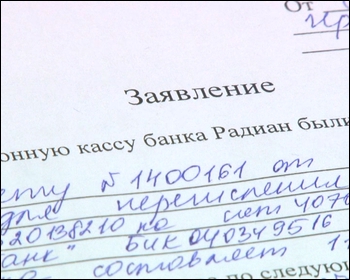 От
Заявление
онную кассу банка Радиан были
№ 1400161 от
для перечисления
20138210 на счет 4070
банк" БИК 040349516
составляет 11
по следующ